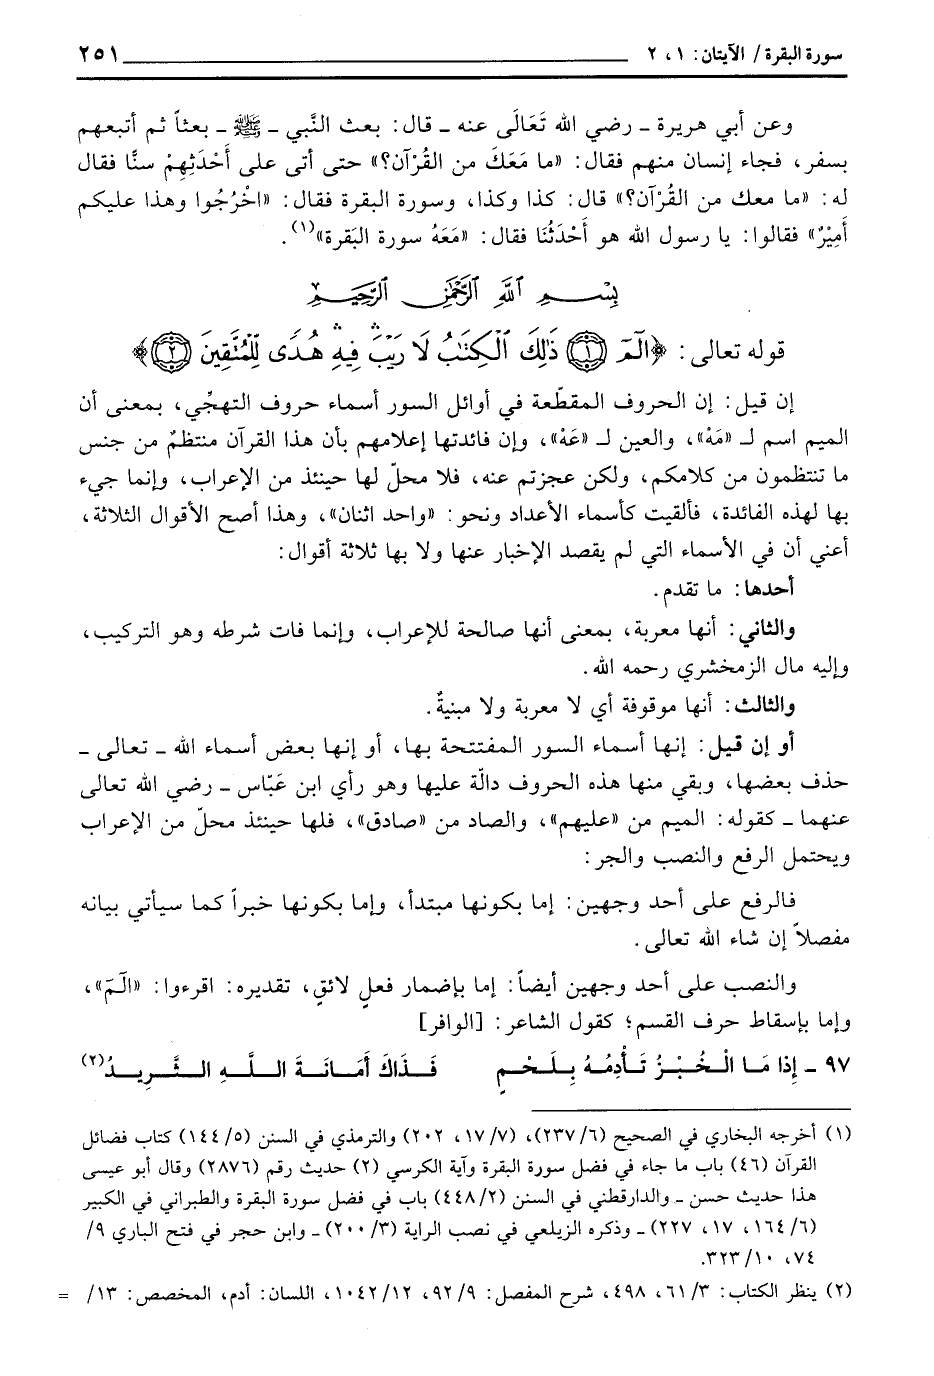 سورة البقرة/ الآيتان: ١، ٢ ٢٥١
وعن أبي هريرة ـ رضي الله تَعَالَى عنه ـ قال: بعث النَّبي ـ ﷺ ـ بعثاً ثم أتبعهم
بسفر، فجاء إنسان منهم فقال: «ما مَعَكَ من القُرْآن؟» حتى أتى على أَحْدَثِهِمْ سنًّا فقال
له: «ما معك من القُرْآن؟» قال: كذا وكذا، وسورة البقرة فقال: «اخْرُجُوا وهذا عليكم
أَمِيْرٌ» فقالوا: يا رسول الله هو أَحْدَثُنَا فقال: «مَعَهُ سورة البَقرة»(١).
بِسْمِ ٱللَّهِ ٱلرَّحْمَٰنِ ٱلرَّحِيمِ
قوله تعالى: ﴿الٓمٓ ﴿١﴾ ذَٰلِكَ ٱلْكِتَٰبُ لَا رَيْبَ ۛ فِيهِ ۛ هُدًى لِّلْمُتَّقِينَ ﴿٢﴾﴾
إن قيل: إن الحروف المقطّعة في أوائل السور أسماء حروف التهجّي، بمعنى أن
الميم اسم لـ «مَهْ»، والعين لـ «عَهْ»، وإن فائدتها إعلامهم بأن هذا القرآن منتظمٌ من جنس
ما تنتظمون من كلامكم، ولكن عجزتم عنه، فلا محلّ لها حينئذ من الإعراب، وإنما جيء
بها لهذه الفائدة، فألقيت كأسماء الأعداد ونحو: «واحد اثنان»، وهذا أصح الأقوال الثلاثة،
أعني أن في الأسماء التي لم يقصد الإخبار عنها ولا بها ثلاثة أقوال:
أحدها: ما تقدم.
والثاني: أنها معربة، بمعنى أنها صالحة للإعراب، وإنما فات شرطه وهو التركيب،
وإليه مال الزمخشري رحمه الله.
والثالث: أنها موقوفة أي لا معربة ولا مبنيةٌ.
أو إن قيل: إنها أسماء السور المفتتحة بها، أو إنها بعض أسماء الله ـ تعالى ـ
حذف بعضها، وبقي منها هذه الحروف دالّة عليها وهو رأي ابن عَبّاس ـ رضي الله تعالى
عنهما ـ كقوله: الميم من «عليهم»، والصاد من «صادق»، فلها حينئذ محلّ من الإعراب
ويحتمل الرفع والنصب والجر:
فالرفع على أحد وجهين: إما بكونها مبتدأ، وإما بكونها خبراً كما سيأتي بيانه
مفصلاً إن شاء الله تعالى.
والنصب على أحد وجهين أيضاً: إما بإضمار فعلٍ لائقٍ، تقديره: اقرءوا: «الٓمٓ»،
وإما بإسقاط حرف القسم؛ كقول الشاعر: [الوافر]
٩٧ ـ إِذا مَا الْخُبْزُ تَأْدِمُهُ بِلَحْمٍ فَذَاكَ أَمَانَةَ اللَّهِ الثَّرِيدُ(٢)
(١) أخرجه البخاري في الصحيح (٢٣٧/٦)، (١٧/٧، ٢٠٢) والترمذي في السنن (١٤٤/٥) كتاب فضائل
القرآن (٤٦) باب ما جاء في فضل سورة البقرة وآية الكرسي (٢) حديث رقم (٢٨٧٦) وقال أبو عيسى
هذا حديث حسن ـ والدارقطني في السنن (٤٤٨/٢) باب في فضل سورة البقرة والطبراني في الكبير
(١٦٤/٦، ١٧، ٢٢٧) ـ وذكره الزيلعي في نصب الراية (٢٠٠/٣) ـ وابن حجر في فتح الباري ٩/
٧٤، ٣٢٣/١٠.
(٢) ينظر الكتاب: ٦١/٣، ٤٩٨، شرح المفصل: ٩٢/٩، ١٠٤٢/١٢، اللسان: أدم، المخصص: ١٣/ =